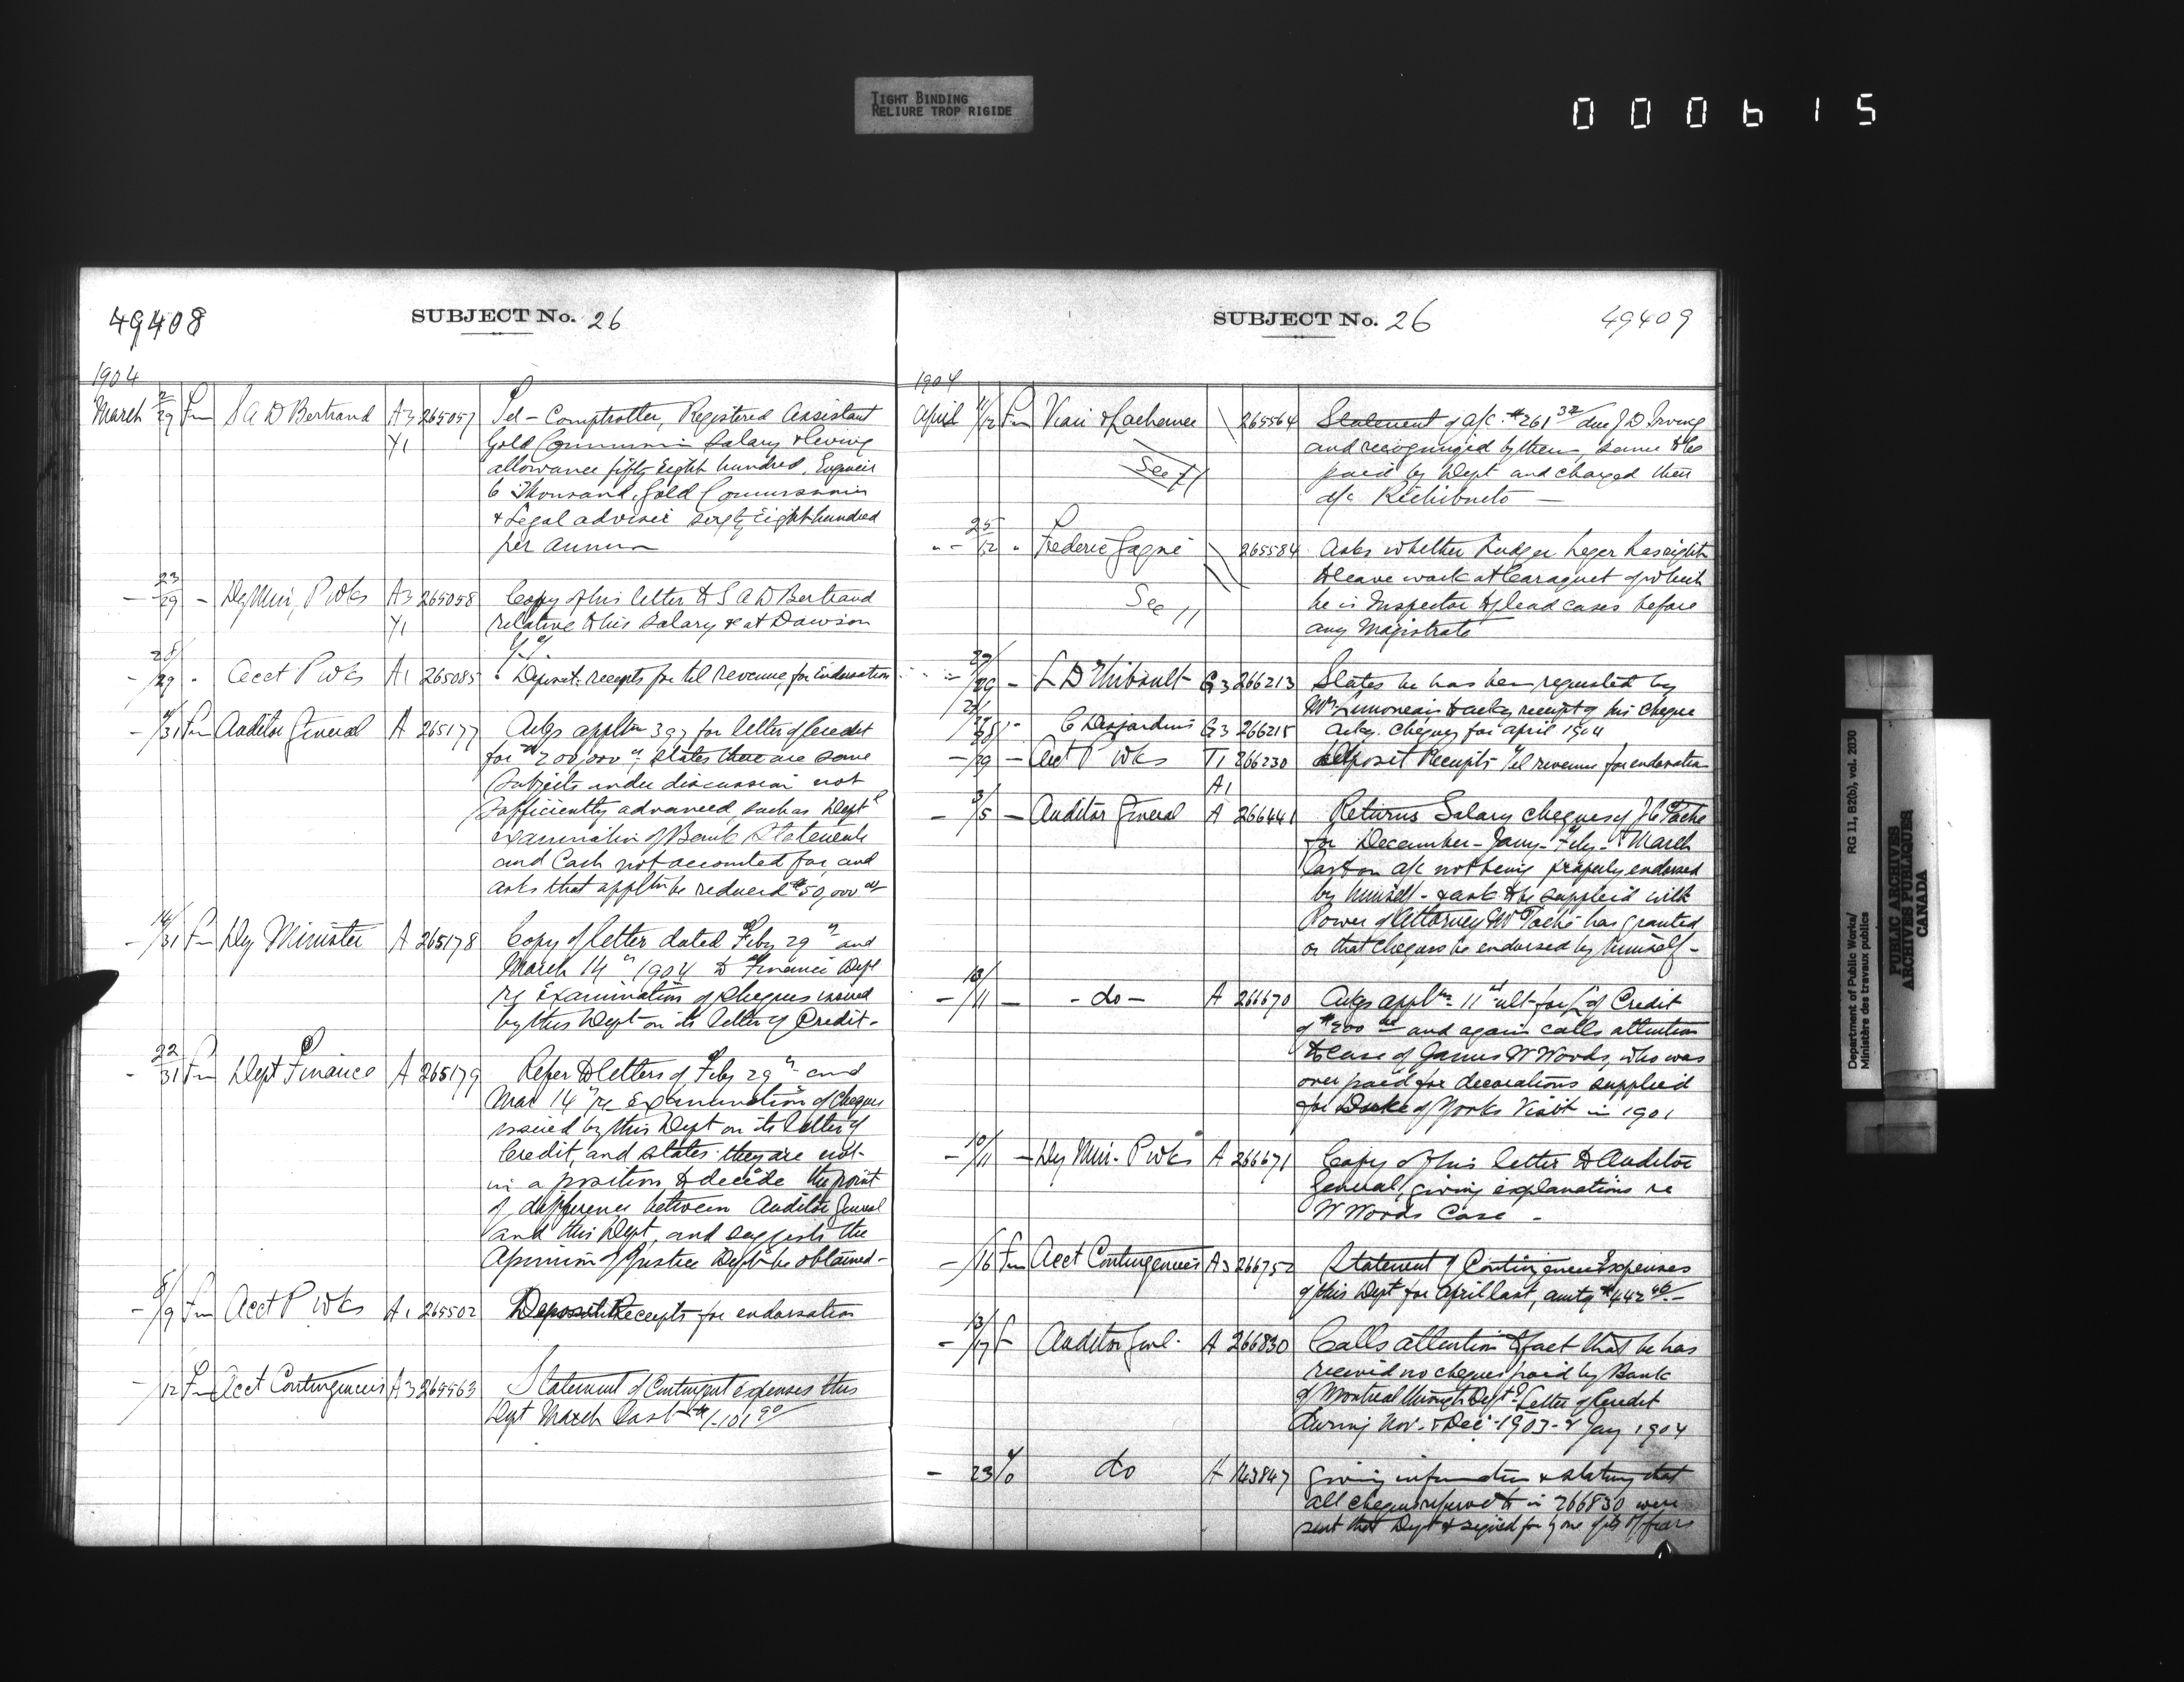 TIGHT BINDING
RELIURE TROP RIGIDE
000615
49408
SUBJECT No. 26
1904
March 2/29 Fm S A D Bertrand A3 265057 Tel - Comptroller, Registered Assistant
Y1 Gold Commissioner salary & living
allowance fifty eight hundred, Engineer
6 Thousand, Gold Commissioner
& Legal adviser sixty eight hundred
per annum
- 23/29 - Dy Min, P Wks A3 265058 Copy of his letter to S A D Bertrand
Y1 relative to his salary & at Dawson
Y.T.
- 28/29 " Acct P Wks A1 265085 Deposit receipts for tel revenue for endorsation
- /31 Fm Auditor General A 265177 Ackgs applin 397 for letter of Credit
for $200,000 states there are some
subjects under discussion not
sufficiently advanced, such as Dept
examination of Bank Statements
and Cash not accounted for, and
asks that applin be reduced $50,000
- 14/31 Fm Dy Minister A 265178 Copy of letter dated Feby 29th and
March 14th 1904 to Finance Dept
re Examination of cheques issued
by this Dept on its letter of Credit -
- 22/31 Fm Dept Finance A 265179 Refer to letters of Feby 29th and
Mar 14th re Examination of Cheques
issued by this Dept on its letter of
Credit, and states they are not
in a position to decide the point
of difference between Auditor General
and this Dept, and suggests the
Opinion of Justice Dept be obtained -
- 8/9 Fm Acct P Wks A1 265502 Deposit Receipts for endorsation
- /12 Fm Acct Contingencies A3 265563 Statement of Contingent expenses this
Dept March last $1,101.90
SUBJECT No. 26
49409
1904
April 11/12 Fm & Lachance 265564 Statement of a/c $261 32 due J D Irving
and recognized by them, same to be
See 11 paid by Dept and charged their
a/c Richibucto -
" - 25/12 " Frederic Gagné 265584 Asks whether Ludger Leger has right
to leave work at Caraquet of which
See 11 he is Inspector to plead cases before
any Magistrate
- 29/29 - L D Thibault G3 266213 States he has been requested by
Mr Limoneau to ackg receipt of his cheque
C Desjardins G3 266215 Ackg. Cheques for April 1904
- /29 - Acct P Wks T1 266230 Deposit Receipts Tel revenue for endorsation
A1
- 3/5 - Auditor General A 266441 Returns Salary cheques of J C Taché
for December - Jany - Feby - & March
last on a/c not being properly endorsed
by himself - & ask to be supplied with
Power of Attorney Mr Taché has granted
or that cheques be endorsed by himself -
- 10/11 - - do - A 266670 Ackgs applin 11th ult for L of Credit
of $200 and again calls attention
to case of James W Woods, who was
over paid for decorations supplied
for Duke of Yorks Visit in 1901
- 10/11 - Dy Min - P Wks A 266671 Copy of his letter to Auditor
General, giving explanations re
W Woods Case -
- /16 Fm Acct Contingencies A3 266752 Statement of Contingencies Expenses
of this Dept for April last, amtg $442 40 -
- 13/17 f Auditor Genl. A 266830 Calls attention to fact that he has
received no cheques paid by Bank
of Montreal through Dept's Letter of Credit
during Nov. & Dec - 1903 - & Jany 1904
- 23 To do A 143847 giving information & stating that
all cheques referred to in 266830 were
sent that Dept & signed for by one of its Officers
Department of Public Works/
Ministère des travaux publics
RG 11, B2(b), vol. 2030
PUBLIC ARCHIVES
ARCHIVES PUBLIQUES
CANADA